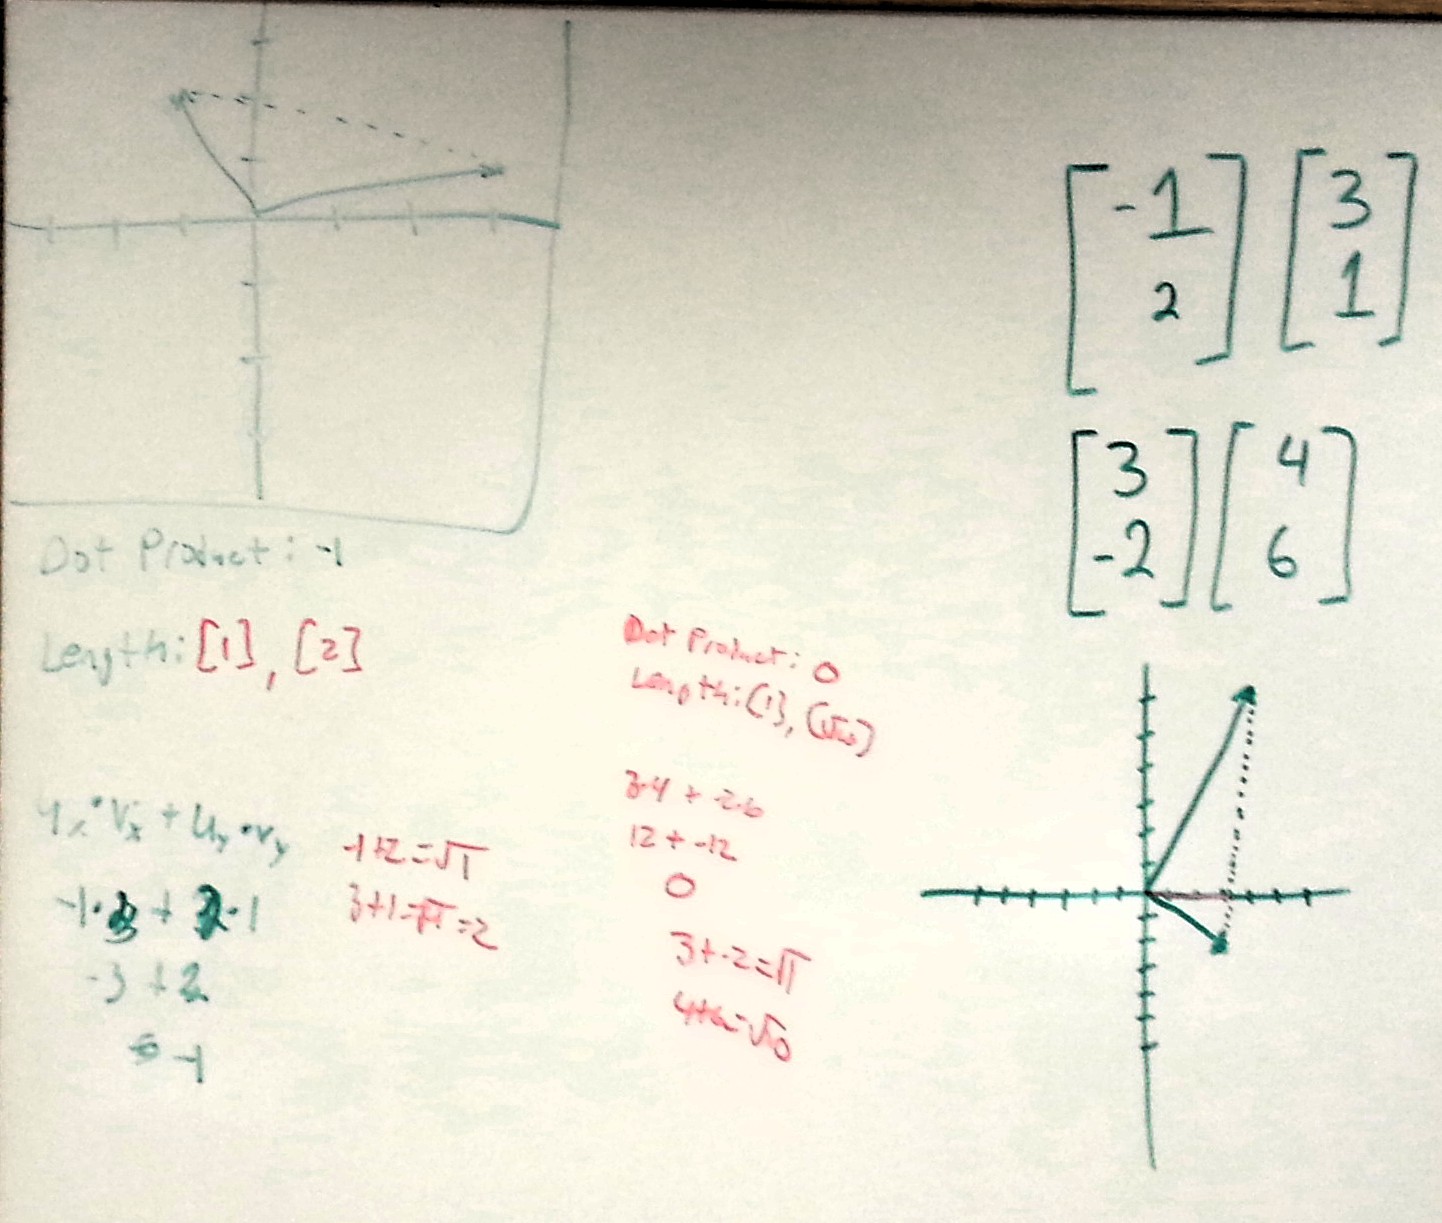 [-1 2] [3 1]
[3 -2] [4 6]
Dot Product: -1
Length: [1], [2]
Ux • Vx + Uy • Vy
-1 • 3 + 2 • 1
-3 + 2
= -1
-1+2=√1
3+1=√4=2
Dot Product: 0
Length: [1], [√10]
3•4 + -2•6
12 + -12
0
3+-2=√1
4+6=√10